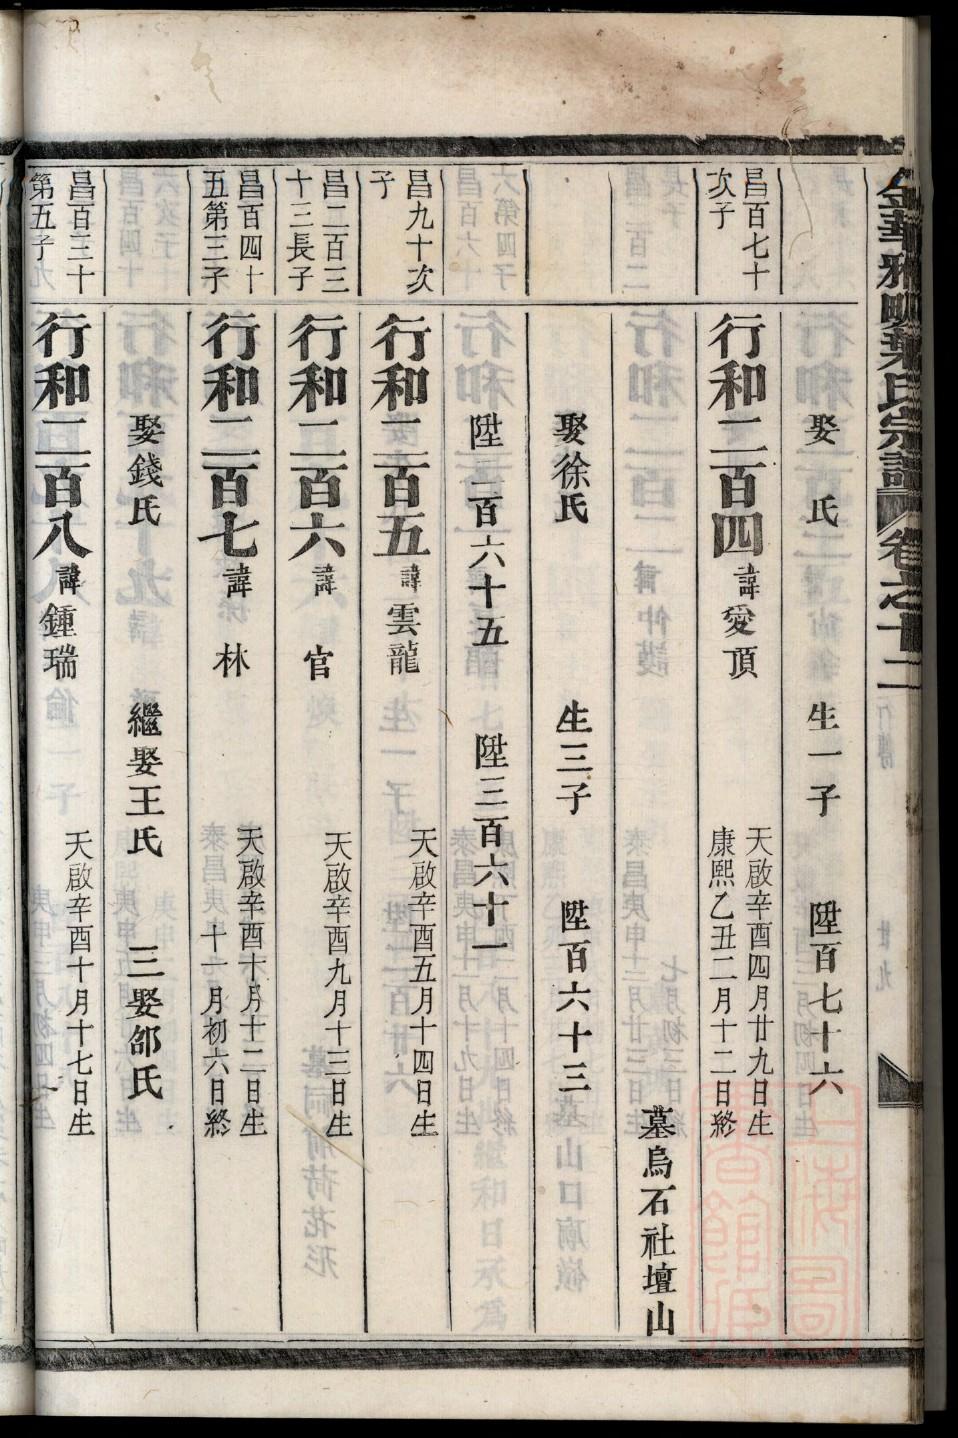 金華雅畈葉氏宗譜 卷之十二 行傳 廿九
娶 氏 生一子 陞百七十六
昌百七十次子
行和二百四 諱愛頂 天啟辛酉四月廿九日生
康熙乙丑二月十二日終
墓烏石社壇山
娶徐氏 生三子 陞百六十三
陞二百六十五 陞三百六十一
昌九十次子
行和二百五 諱雲龍 天啟辛酉五月十四日生
昌二百三十三長子
行和二百六 諱官 天啟辛酉九月十三日生
昌百四十五第三子
行和二百七 諱林 天啟辛酉十月十二日生
十一月初六日終
娶錢氏 繼娶王氏 三娶邵氏
昌百三十第五子
行和二百八 諱鍾瑞 天啟辛酉十月十七日生